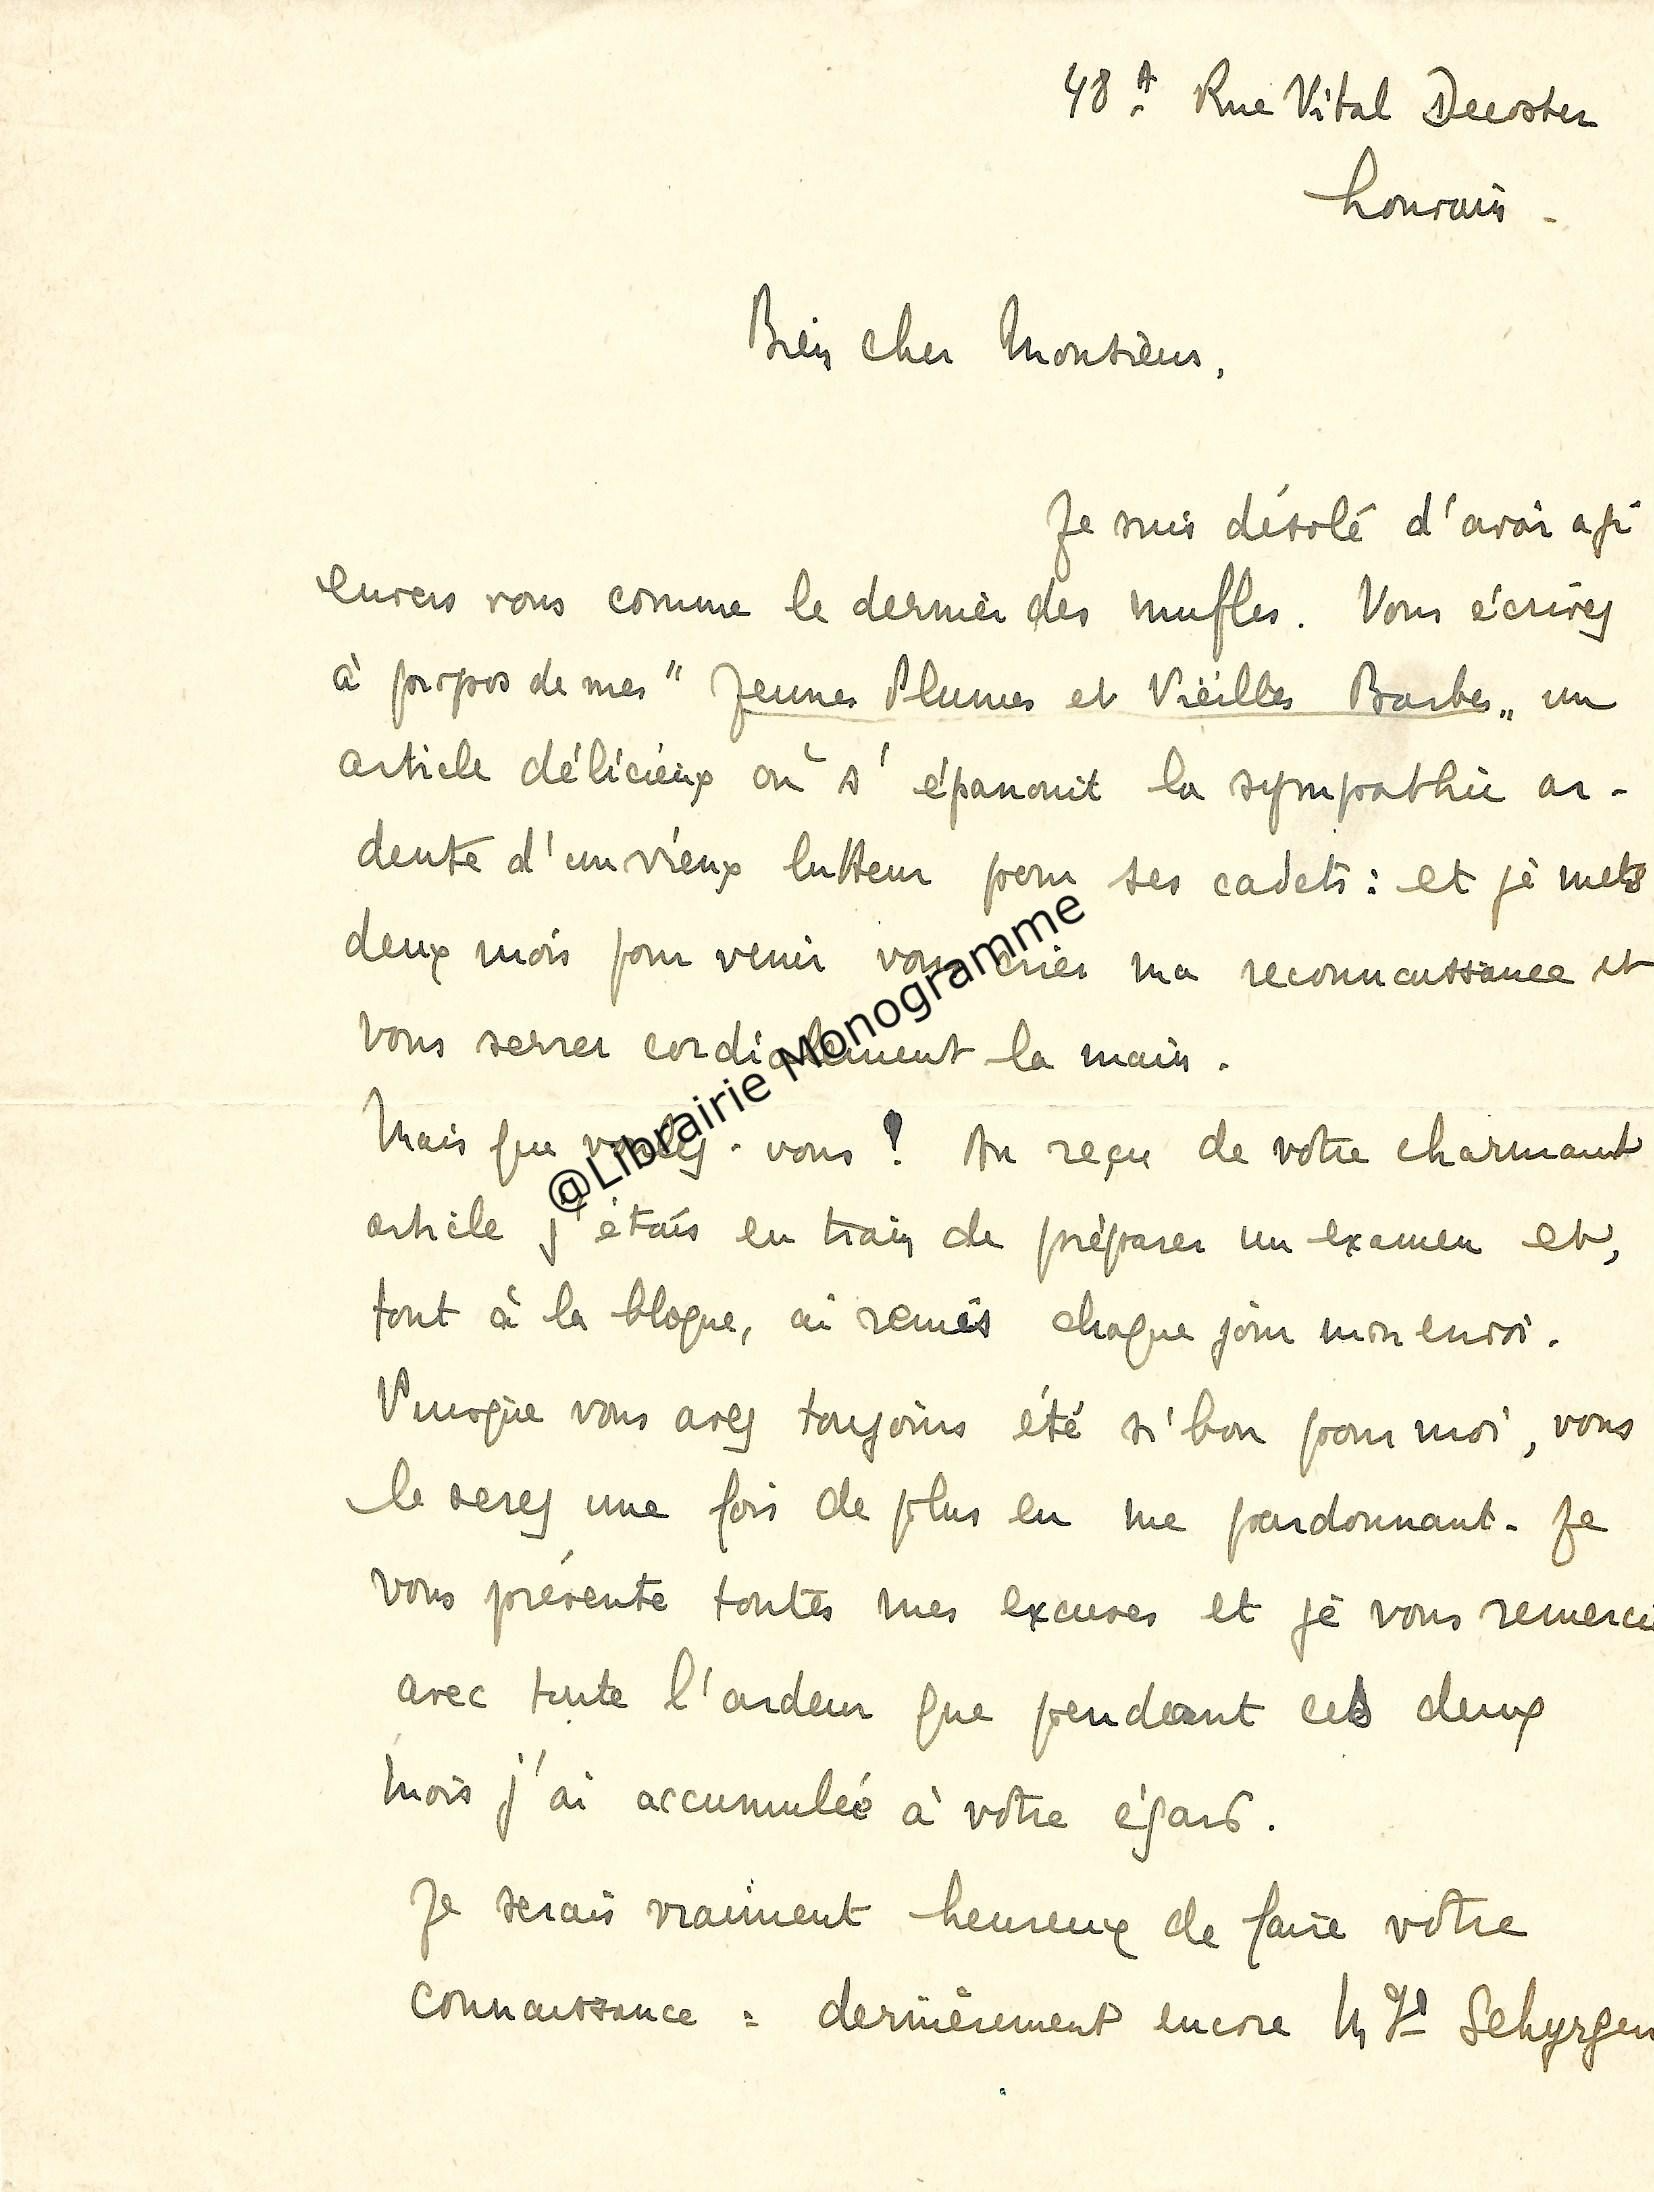 48 A Rue Vital Decoster
Louvain -
Bien cher Monsieur,
Je suis désolé d'avoir agi
envers vous comme le dernier des mufles. Vous écrivez
à propos de mes " Jeunes Plumes et Vieilles Barbes" un
article délicieux où s'épanouit la sympathie ar-
dente d'un vieux lutteur pour ses cadets : et je mets
deux mois pour venir vous crier ma reconnaissance et
vous serrer cordialement la main.
Mais que voulez-vous ! Au reçu de votre charmant
article j'étais en train de préparer un examen et,
tout à la blogue, ai remis chaque jour mon envoi.
Puisque vous avez toujours été si bon pour moi, vous
le serez une fois de plus en me pardonnant. Je
vous présente toutes mes excuses et je vous remercie
avec toute l'ardeur que pendant ces deux
mois j'ai accumulée à votre égard.
Je serais vraiment heureux de faire votre
connaissance : dernièrement encore Mgr Schyrgen
@Librairie Monogramme